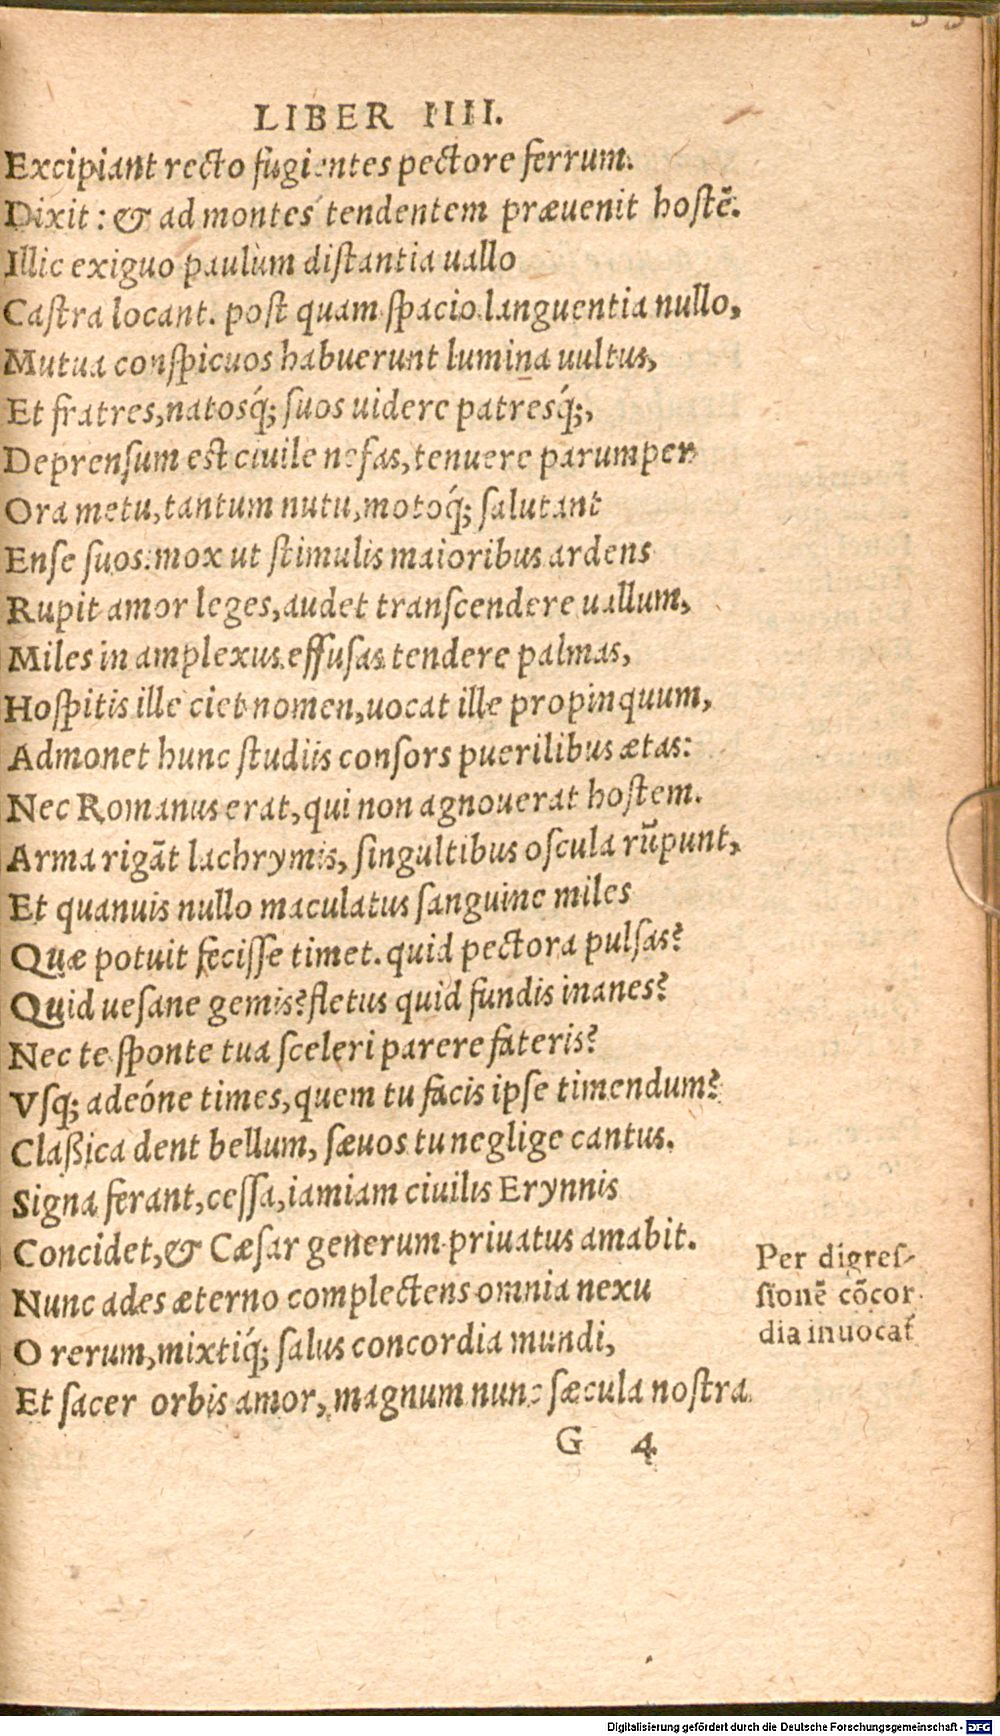 LIBER IIII.
Excipiant recto fugientes pectore ferrum.
Dixit: & ad montes tendentem præuenit hostē.
Illic exiguo paulùm distantia uallo
Castra locant. post quam spacio languentia nullo,
Mutua conspicuos habuerunt lumina uultus,
Et fratres, natosq́; suos uidere patresq́;,
Deprensum est ciuile nefas, tenuere parumper
Ora metu, tantum nutu, motoq́; salutant
Ense suos: mox ut stimulis maioribus ardens
Rupit amor leges, audet transcendere uallum,
Miles in amplexus effusas tendere palmas,
Hospitis ille ciet nomen, uocat ille propinquum,
Admonet hunc studiis consors puerilibus ætas:
Nec Romanus erat, qui non agnouerat hostem.
Arma rigāt lachrymis, singultibus oscula rūpunt,
Et quanuis nullo maculatus sanguine miles
Quæ potuit fecisse timet. quid pectora pulsas?
Quid uesane gemis? fletus quid fundis inanes?
Nec te sponte tua sceleri parere fateris?
Vsq; adeóne times, quem tu facis ipse timendum?
Claßica dent bellum, sæuos tu neglige cantus.
Signa ferant, cessa, iamiam ciuilis Erynnis
Concidet, & Cæsar generum priuatus amabit.
Nunc ades æterno complectens omnia nexu
O rerum, mixtiq́; salus concordia mundi,
Et sacer orbis amor, magnum nunc sæcula nostra
Per digres-
sionē cōcor
dia inuocat
G 4
Digitalisierung gefördert durch die Deutsche Forschungsgemeinschaft - DFG